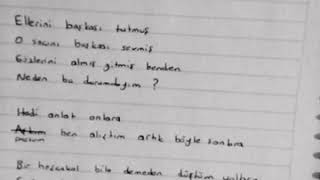 Ellerini başkası tutmuş
O saçını başkası sevmiş
Gözlerini almış gitmiş benden
Neden bu durumdayım ?
Hadi anlat onlara
ben alıştım artık böyle sonlara
Bir hoşçakal bile demeden düştüm yollara